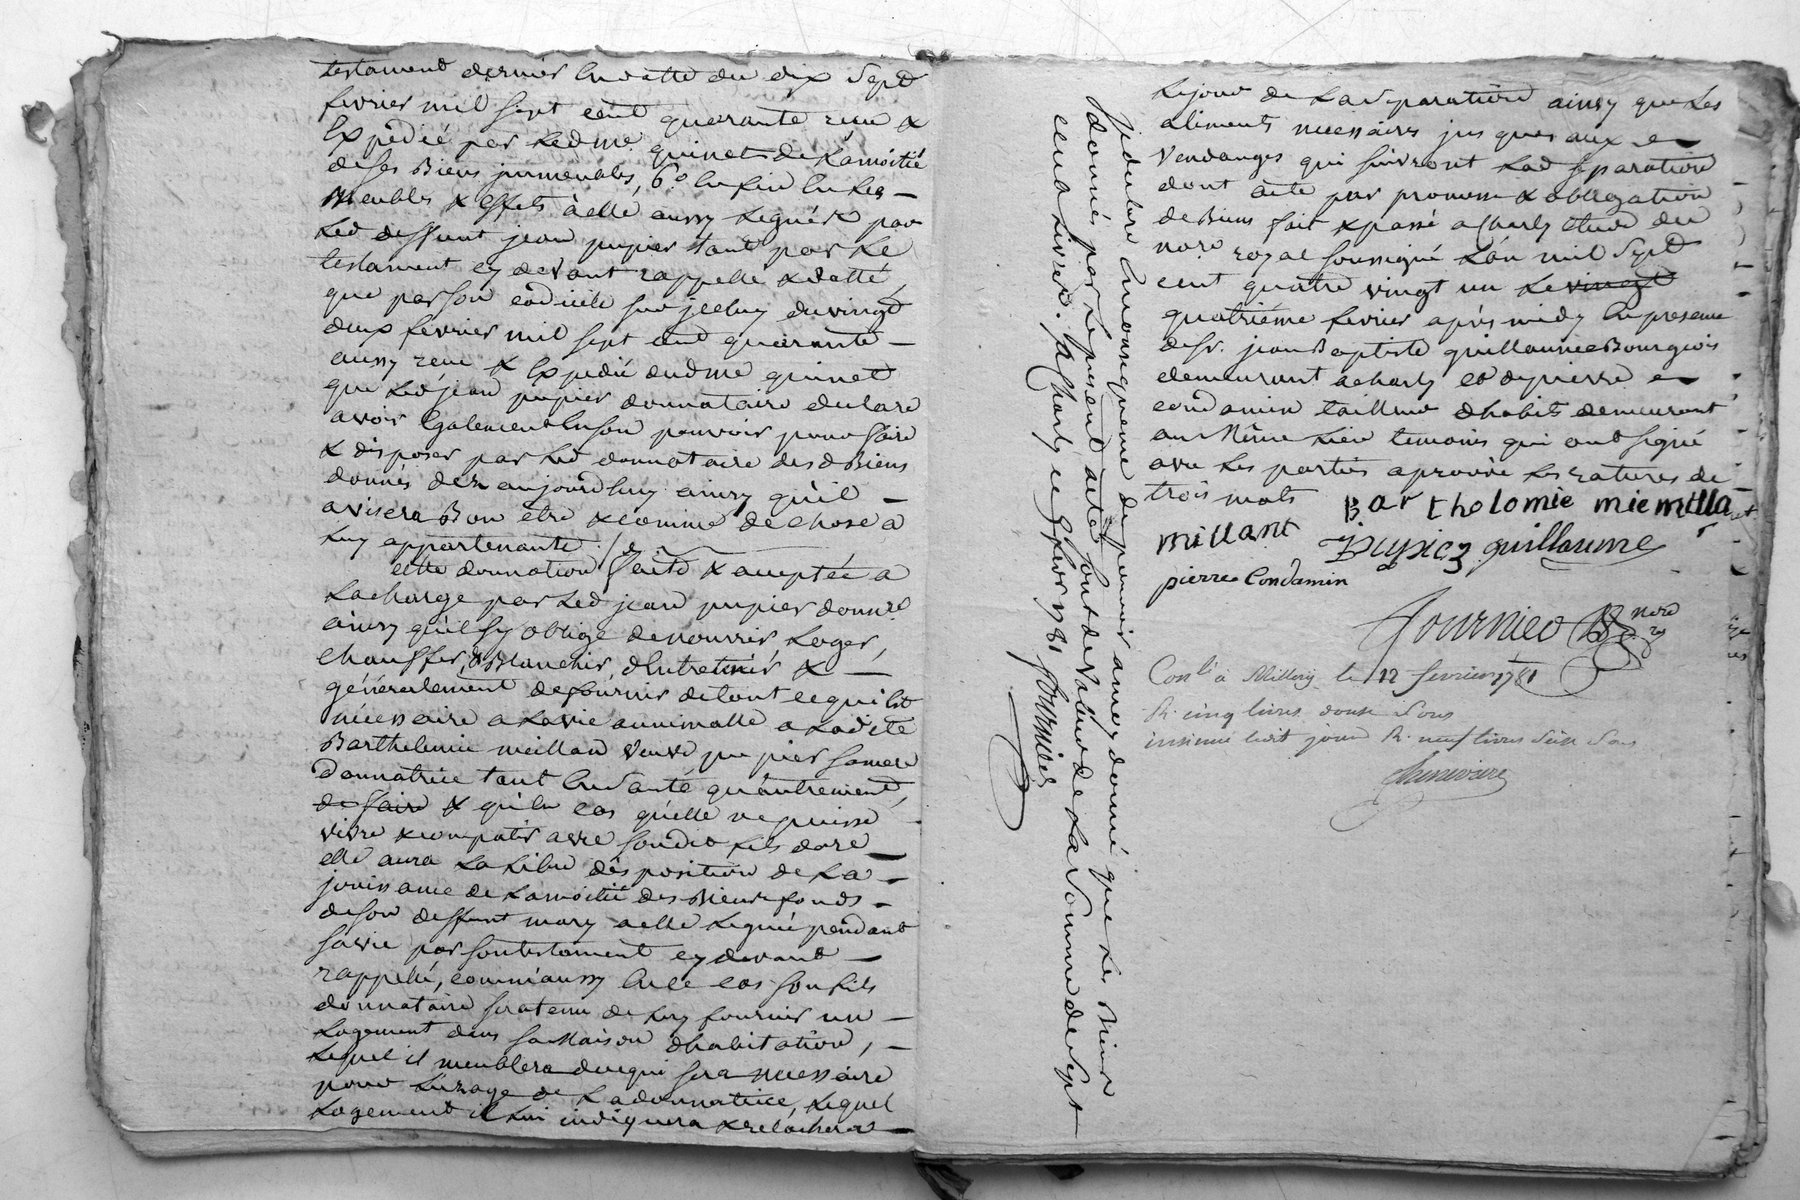 testament dernier en datte du dix Sept
fevrier mil Sept cent quarante reçu &
Expedié par led me quinet de la moitié
de ses Biens immeubles, 6.o enfin en les
Meubles & Effets à elle aussy Legués par
Led deffunt jean pupier tant par Le
testament cy devant rappellé & datté
que par son codicile sur jceluy du vingt
deux fevrier mil sept cent quarante
aussy reçu & Expedié dud me quinet
que Led jean pupier donnataire declare
avoir Egalement en son pouvoir pour faire
& disposer par Led donnataire desd Biens
donnés dez aujourdhuy ainsy qu'il
avisera Bon être & comme de chose a
Luy appartenante
cette donnation faite & acceptée a
La charge par Led jean pupier donnre
ainsy qu'il s'y oblige de nourrir, Loger,
Chauffer, Blanchir, d'Entretenir &
générerlement de fournir de tout ce qui Est
nécessaire a La vie annimalle a Ladite
Barthelemie meillan veuve pupier sa mere
Donnatrice tant En Santé qu'autrement,
de faire & qu'en cas qu'elle ne puisse
vivre & compatir avec son dit fils donre
elle aura La Libre disposition de La
jouissance de La moitié des Biens fonds
de son deffunt mary a elle Legué pendant
sa vie par son testament cy devant
rappellé, comm'aussy En ce cas son fils
donnataire sera tenu de Luy fournir un
Logement dans sa Maison d'habitation,
Lequel il meublera de ce qui sera necessaire
pour L'uzage de La donnatrice, Lequel
Logement il Lui indiquera & relachera
Le jour de La Separation ainsy que Les
aliments necessaires jusques aux
Vendanges qui suivront Lad Separation
dont acte par promesse & obligation
de Biens fait & passé a Charly Etude du
nore royal soussigné L'an mil Sept
cent quatre vingt un Le vingt
quatriéme fevrier après midy En presence
de Sr. jean Baptiste guillaume Bourgeois
demeurant a charly et de pierre
condamin tailleur d'habits demeurant
au Même Lieu temoins qui ont signé
avec Les parties aprouvé Les ratures de
trois mots Bartholomie miemilla
millant Pupier guillaume
pierre Condamin
fournier nore
Conlé à Millery le 12 fevrier 1781
R. cinq livres douze Sous
insinué ledit jour R. neuf livres Seize Sous
Je declare En consequence du pouvoir a moy donné que Les Biens
donnés par Le present acte sont de valeur de La Somme de Sept
cent Livres. a Charly ce 4 fevrier 1781 fournier